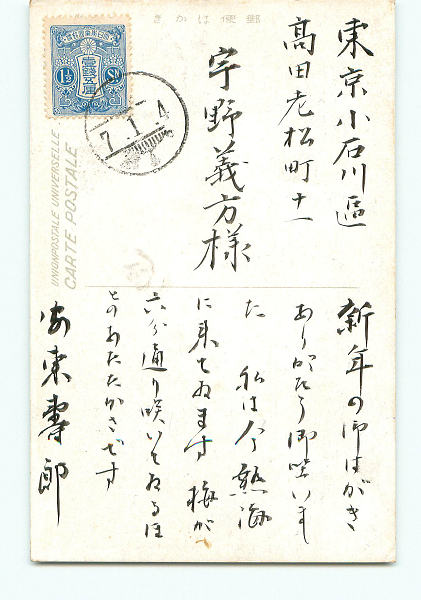 郵便はがき
東京小石川區
高田老松町十一
宇野義方様
新年の御はがき
ありがたう御坐いまし
た 私は今熱海
に来てゐます 梅が
六分通り咲いてゐるほ
どのあたたかさです
安東壽郎
UNION POSTALE UNIVERSELLE
CARTE POSTALE
1½ Sn
7.1.4